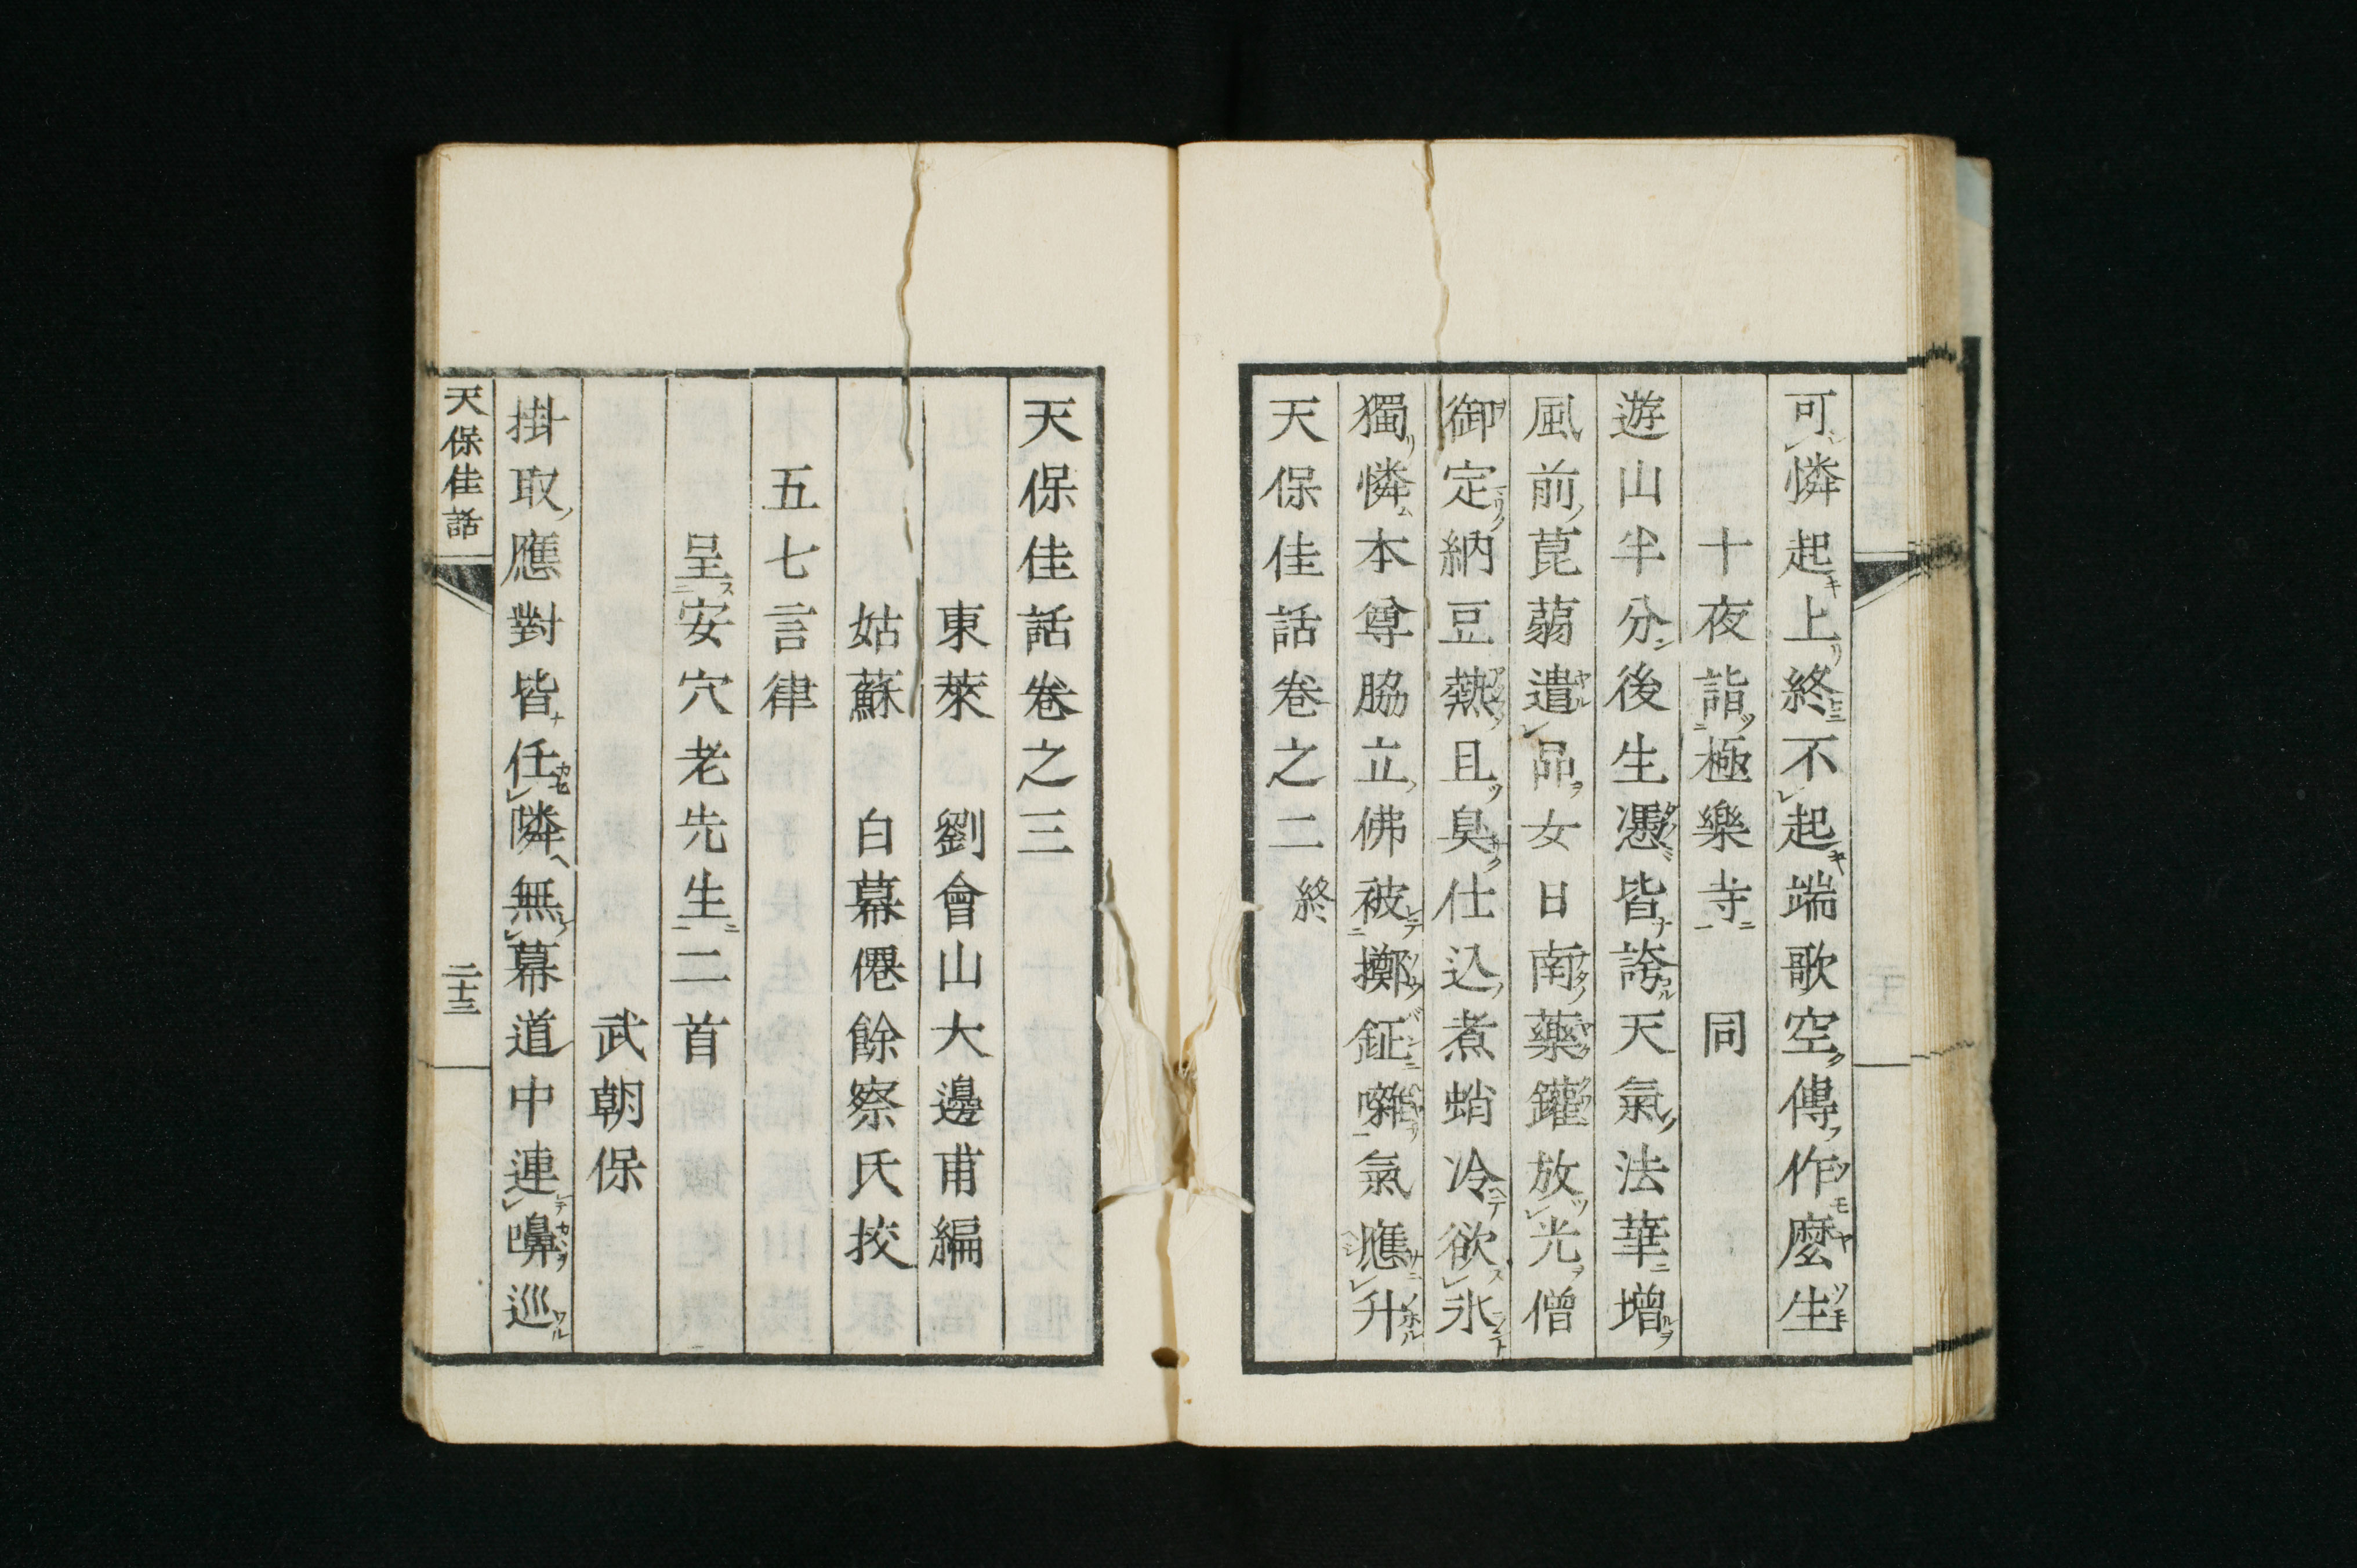 可憐起上終不起端歌空傳作麼生
十夜詣極樂寺　同
遊山半分後生憑皆誇天氣法華增
風前菎蒻遣品女日南藥鑵放光僧
御定納豆熱且臭仕込煮蛸冷欲氷
獨憐本尊脇立佛被擲鉦囃氣應升
天保佳話卷之二終
天保佳話卷之三
東萊　劉會山大邊甫編
姑蘇　白幕僊餘察氏挍
五七言律
呈安穴老先生二首
武朝保
掛取應對皆任隣無幕道中連嚊巡
天保佳話
二十三